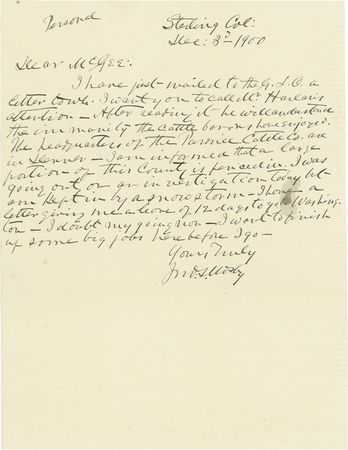 Personal
Sterling Col:
Dec: 3d - 1900
Dear McGee:
I have just mailed to the G.L.O. a
letter. I want you to call Mr Harlan's
attention - After reading it he will understand
the immunity the cattle barons have enjoyed.
The headquarters of the Pawnee Cattle Co. are
in Denver - I am informed that a large
portion of this County is fenced in. I was
going out on an investigation today but
am kept in by a snow storm - I have a
letter giving me a leave of 12 days to go to Washing-
ton - I doubt my going now - I want to finish
up some big jobs here before I go -
Yours Truly
Jno. S. Mosby